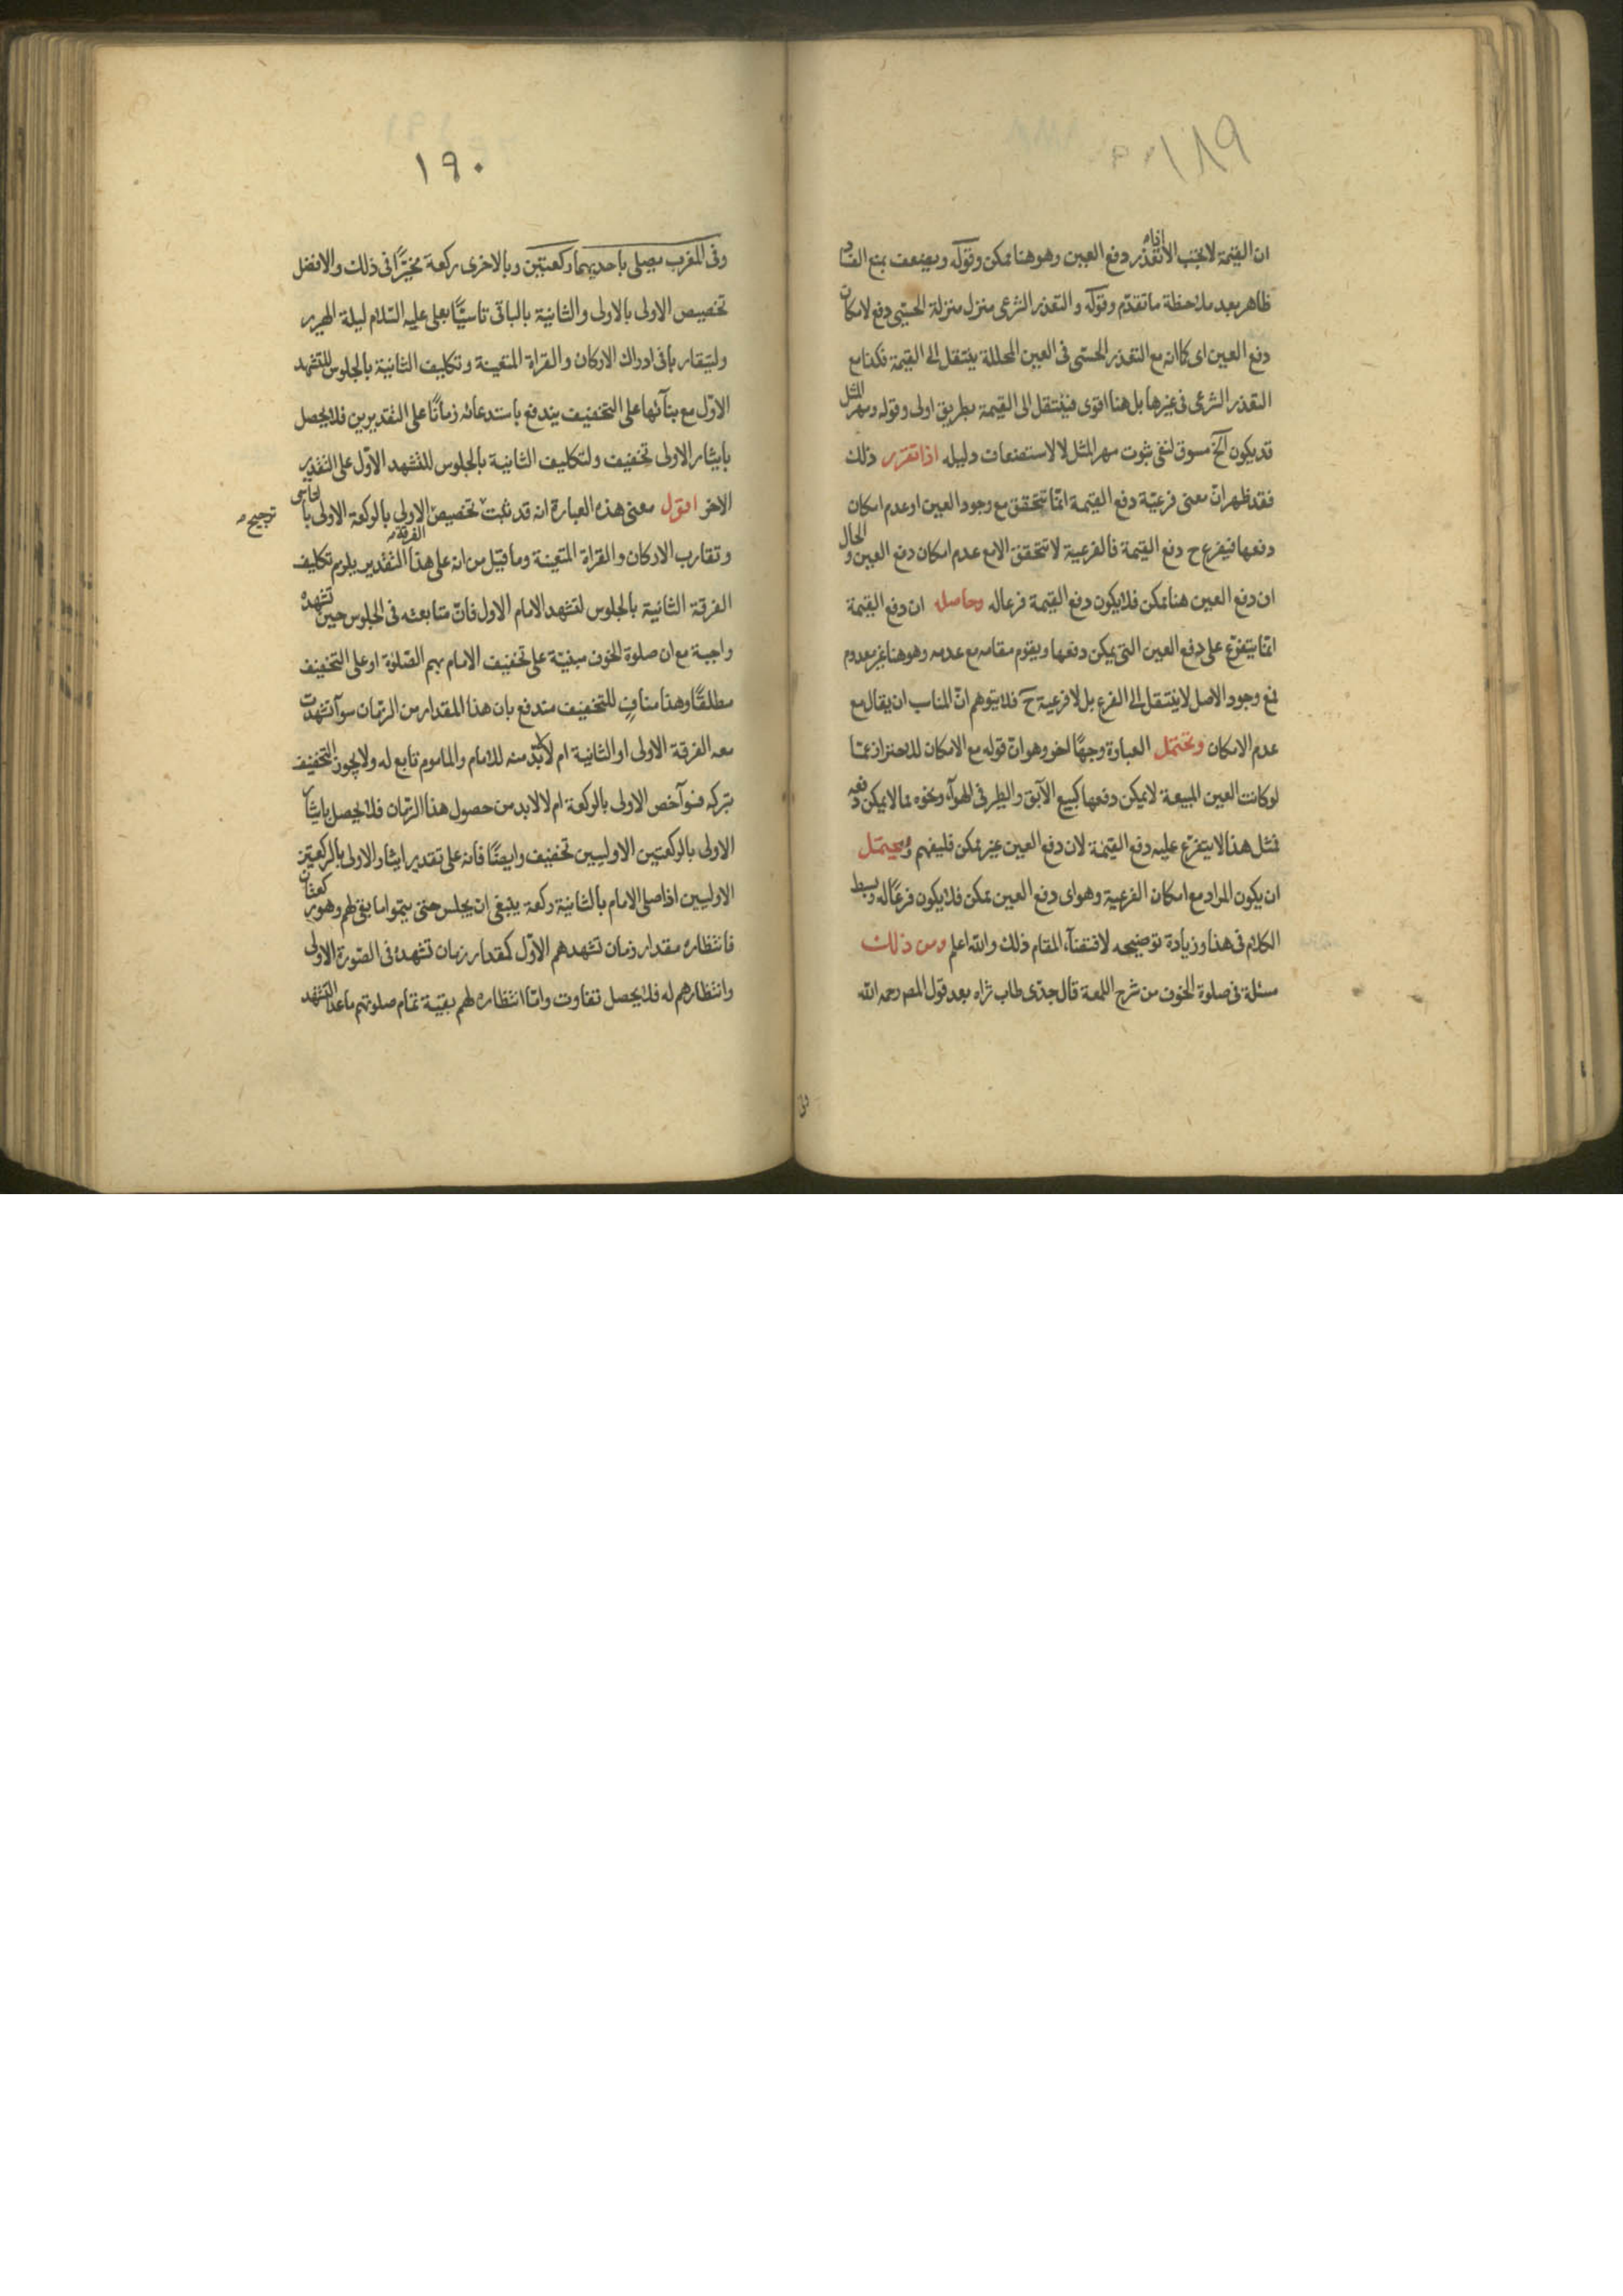 ١٨٩
ان القيمة لا تجب الا اذا تعذر دفع العين وهو هنا ممكن وقوله ويضعف بمنع الفساد
ظاهر بعد ملاحظة ما تقدم وقوله والتعذر الشرعى منزل منزلة الحسّى دفع لامكان
دفع العين اى كما انه مع التعذر الحسّى فى العين المحللة ينتقل الى القيمة فكذا مع
التعذر الشرعى فى غيرها بل هنا اقوى فينتقل الى القيمة بطريق اولى وقوله ومهر المثل
قد يكون آلخ مسوق لنفى ثبوت مهر المثل لا لاستضعاف دليله اذا تقرر ذلك
فقد ظهر انّ معنى فرعيّة دفع القيمة انّما تتحقق مع وجود العين او عدم امكان
دفعها فيفرع ح دفع القيمة فالفرعية لا تتحقق الا مع عدم امكان دفع العين والحال
ان دفع العين هنا ممكن فلا يكون دفع القيمة فرعا له وحاصله ان دفع القيمة
انما يتفرّع على دفع العين التى يمكن دفعها ويقوم مقامه مع عدمه وهو هنا غير معدوم
فمع وجود الاصل لا ينتقل الى الفرع بل لا فرعية ح فلا يتوهم انّ المناسب ان يقال مع
عدم الامكان وتحتمل العبارة وجهًا اخر وهو انّ قوله مع الامكان للاحتراز عمّا
لو كانت العين المبيعة لا يمكن دفعها كبيع الآبق والطير فى الهوآء ونحوه مما لا يمكن دفعه
فمثل هذا لا يتفرّع عليه دفع القيمة لان دفع العين غير ممكن فليفهم ويحتمل
ان يكون المراد مع امكان الفرعية وهو اى دفع العين ممكن فلا يكون فرعًا له وبسط
الكلام فى هذا وزيادة توضيحه لاقتضآء المقام ذلك والله اعلم ومن ذلك
مسئلة فى صلوة الخوف من شرح اللمعة قال جدّى طاب ثراه بعد قول المصـ رحمه الله
١٩٠
وفى المغرب يصلى باحديهما ركعتين وبالاخرى ركعة مخيّرًا فى ذلك والافضل
تخصيص الاولى بالاولى والثانية بالباقى تاسيًّا بعلى عليه السّلام ليلة الهرير
وليتقاربا فى ادراك الاركان والقراة المتعينة وتكليف الثانية بالجلوس للتشهد
الاوّل مع بنآئها على التخفيف يندفع باستدعائه زمانًا على التقديرين فلا يحصل
بايثار الاولى تخفيف ولتكليف الثانية بالجلوس للتشهد الاوّل على التقدير
الاخر اقول معنى هذه العبارة انه قد ثبت تخصيص الاولى بالركعة الاولى بالتاسى
ترجيح صـ
وتقارب الاركان والقراة المتعينة وما قيل من انه على هذا التقدير يلزم تكليف
الفرقة الثانية بالجلوس لتشهد الامام الاول فانّ متابعته فى الجلوس حين تشهده
واجبة مع ان صلوة الخوف مبنيّة على تخفيف الامام بهم الصّلوة او على التخفيف
مطلقًا وهذا منافٍ للتخفيف مندفع بان هذا المقدار من الزمان سوآء تشهدت
معه الفرقة الاولى او الثانية ام لا لا بدّ منه للامام والماموم تابع له ولا يجوز التخفيف
بتركه فسوآء خص الاولى بالركعة ام لا لا بد من حصول هذا الزمان فلا يحصل بايثار
الاولى بالركعتين الاوليين تخفيف وايضًا فانه على تقدير ايثار الاولى بالركعتين
الاوليين اذا صلى الامام بالثانية ركعة ينبغى ان يجلس حتى يتموا ما بقى لهم وهو ركعتان
فانتظاره مقدار زمان تشهدهم الاوّل كمقدار زمان تشهده فى الصّورة الاولى
وانتظارهم له فلا يحصل تفاوت وامّا انتظاره لهم بقيّة تمام صلوتهم ما عدا التشهد